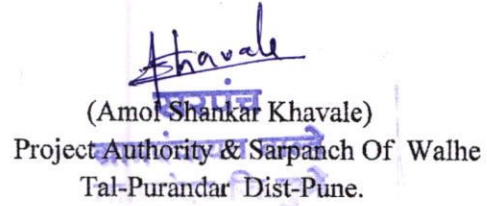 Khavale
सरपंच
(Amol Shankar Khavale)
Project Authority & Sarpanch Of Walhe
Tal-Purandar Dist-Pune.